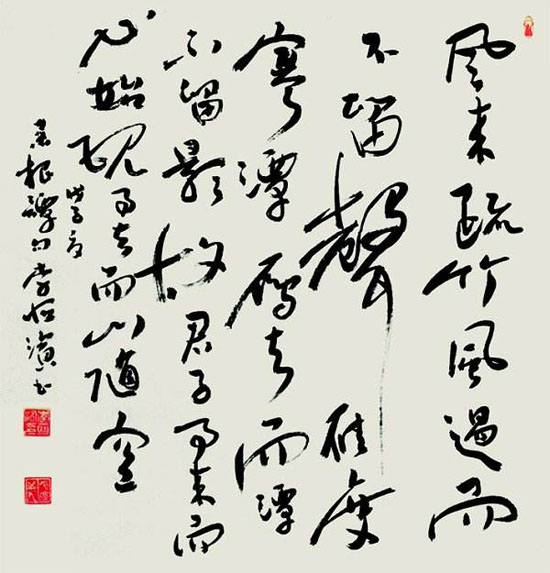 風來疏竹風過而
不留聲雁度
寒潭雁去而潭
不留影故君子事來而
心始現事去而心隨空
戊子夏
菜根譚句